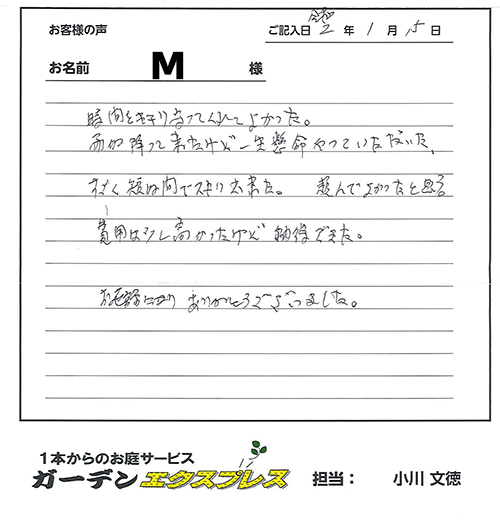 お客様の声
ご記入日 令和2年1月15日
お名前 M 様
時間をキッチリ守ってくれてよかった。
雨が降って来たけど一生懸命やっていただいた、
すごく短時間でスッキリ出来た。 頼んでよかったと思う
費用は少し高かったけど納得できた。
お世話になり ありがとうございました。
1本からのお庭サービス
ガーデンエクスプレス 担当： 小川 文徳